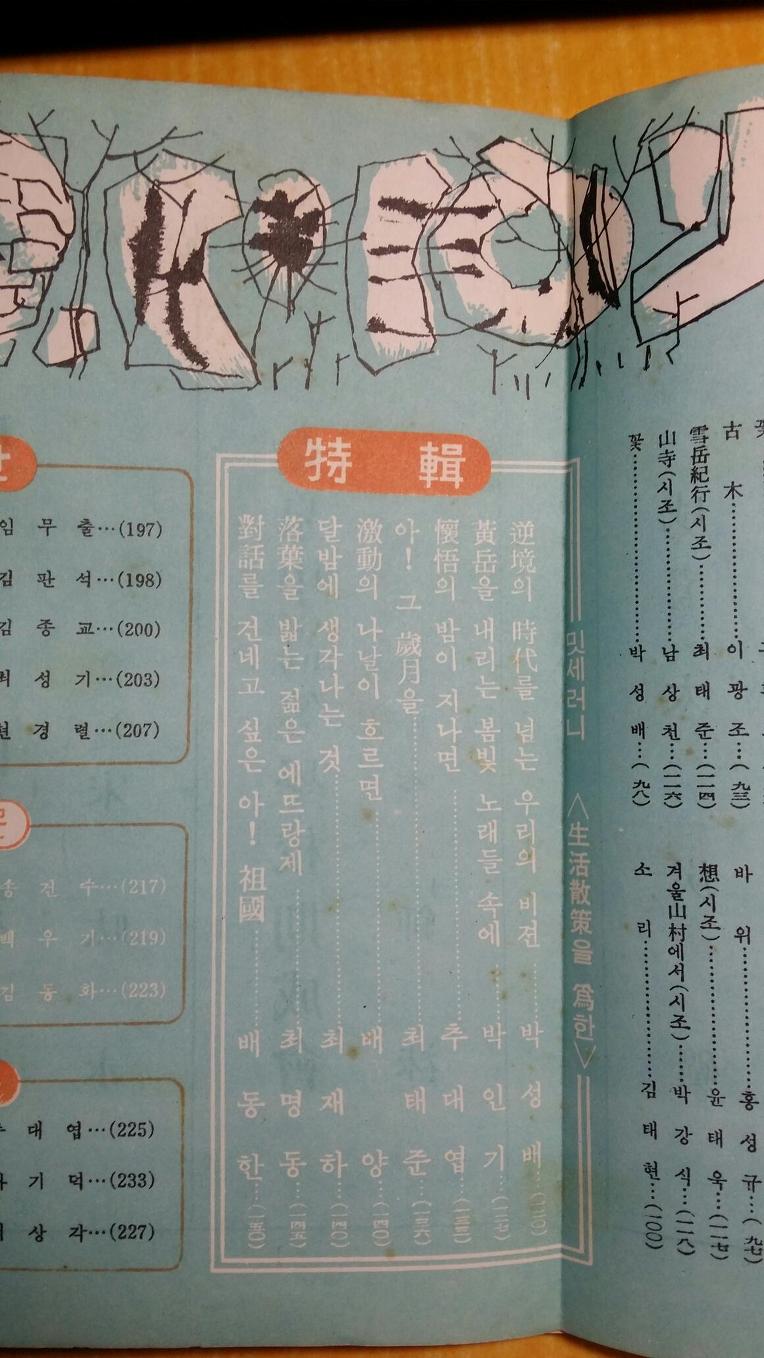 古木……이광조…(九三)
雪岳紀行(시조)……최태준…(一一四)
山寺(시조)……남상천…(一一六)
꽃……박성배…(九八)
바위……홍성규…(九七)
想(시조)……윤태욱…(一一七)
겨울山村에서(시조)……박강식…(一一八)
소리……김태현…(一〇〇)
밋세러니 <生活散策을 爲한>
特輯
逆境의 時代를 넘는 우리의 비젼……박성배
黃岳을 내리는 봄빛 노래들 속에……박인기
懷悟의 밤이 지나면……추대엽
아! 그 歲月을……최태준
激動의 나날이 흐르면……배양
달밤에 생각나는 것……최재하
落葉을 밟는 젊은 에뜨랑제……최명동…(一四五)
對話를 건네고 싶은 아! 祖國……배동한…(一五〇)
임무출…(197)
김판석…(198)
김종교…(200)
최성기…(203)
현경렬…(207)
송전수…(217)
백우기…(219)
김동화…(223)
대엽…(225)
기덕…(233)
상각…(227)